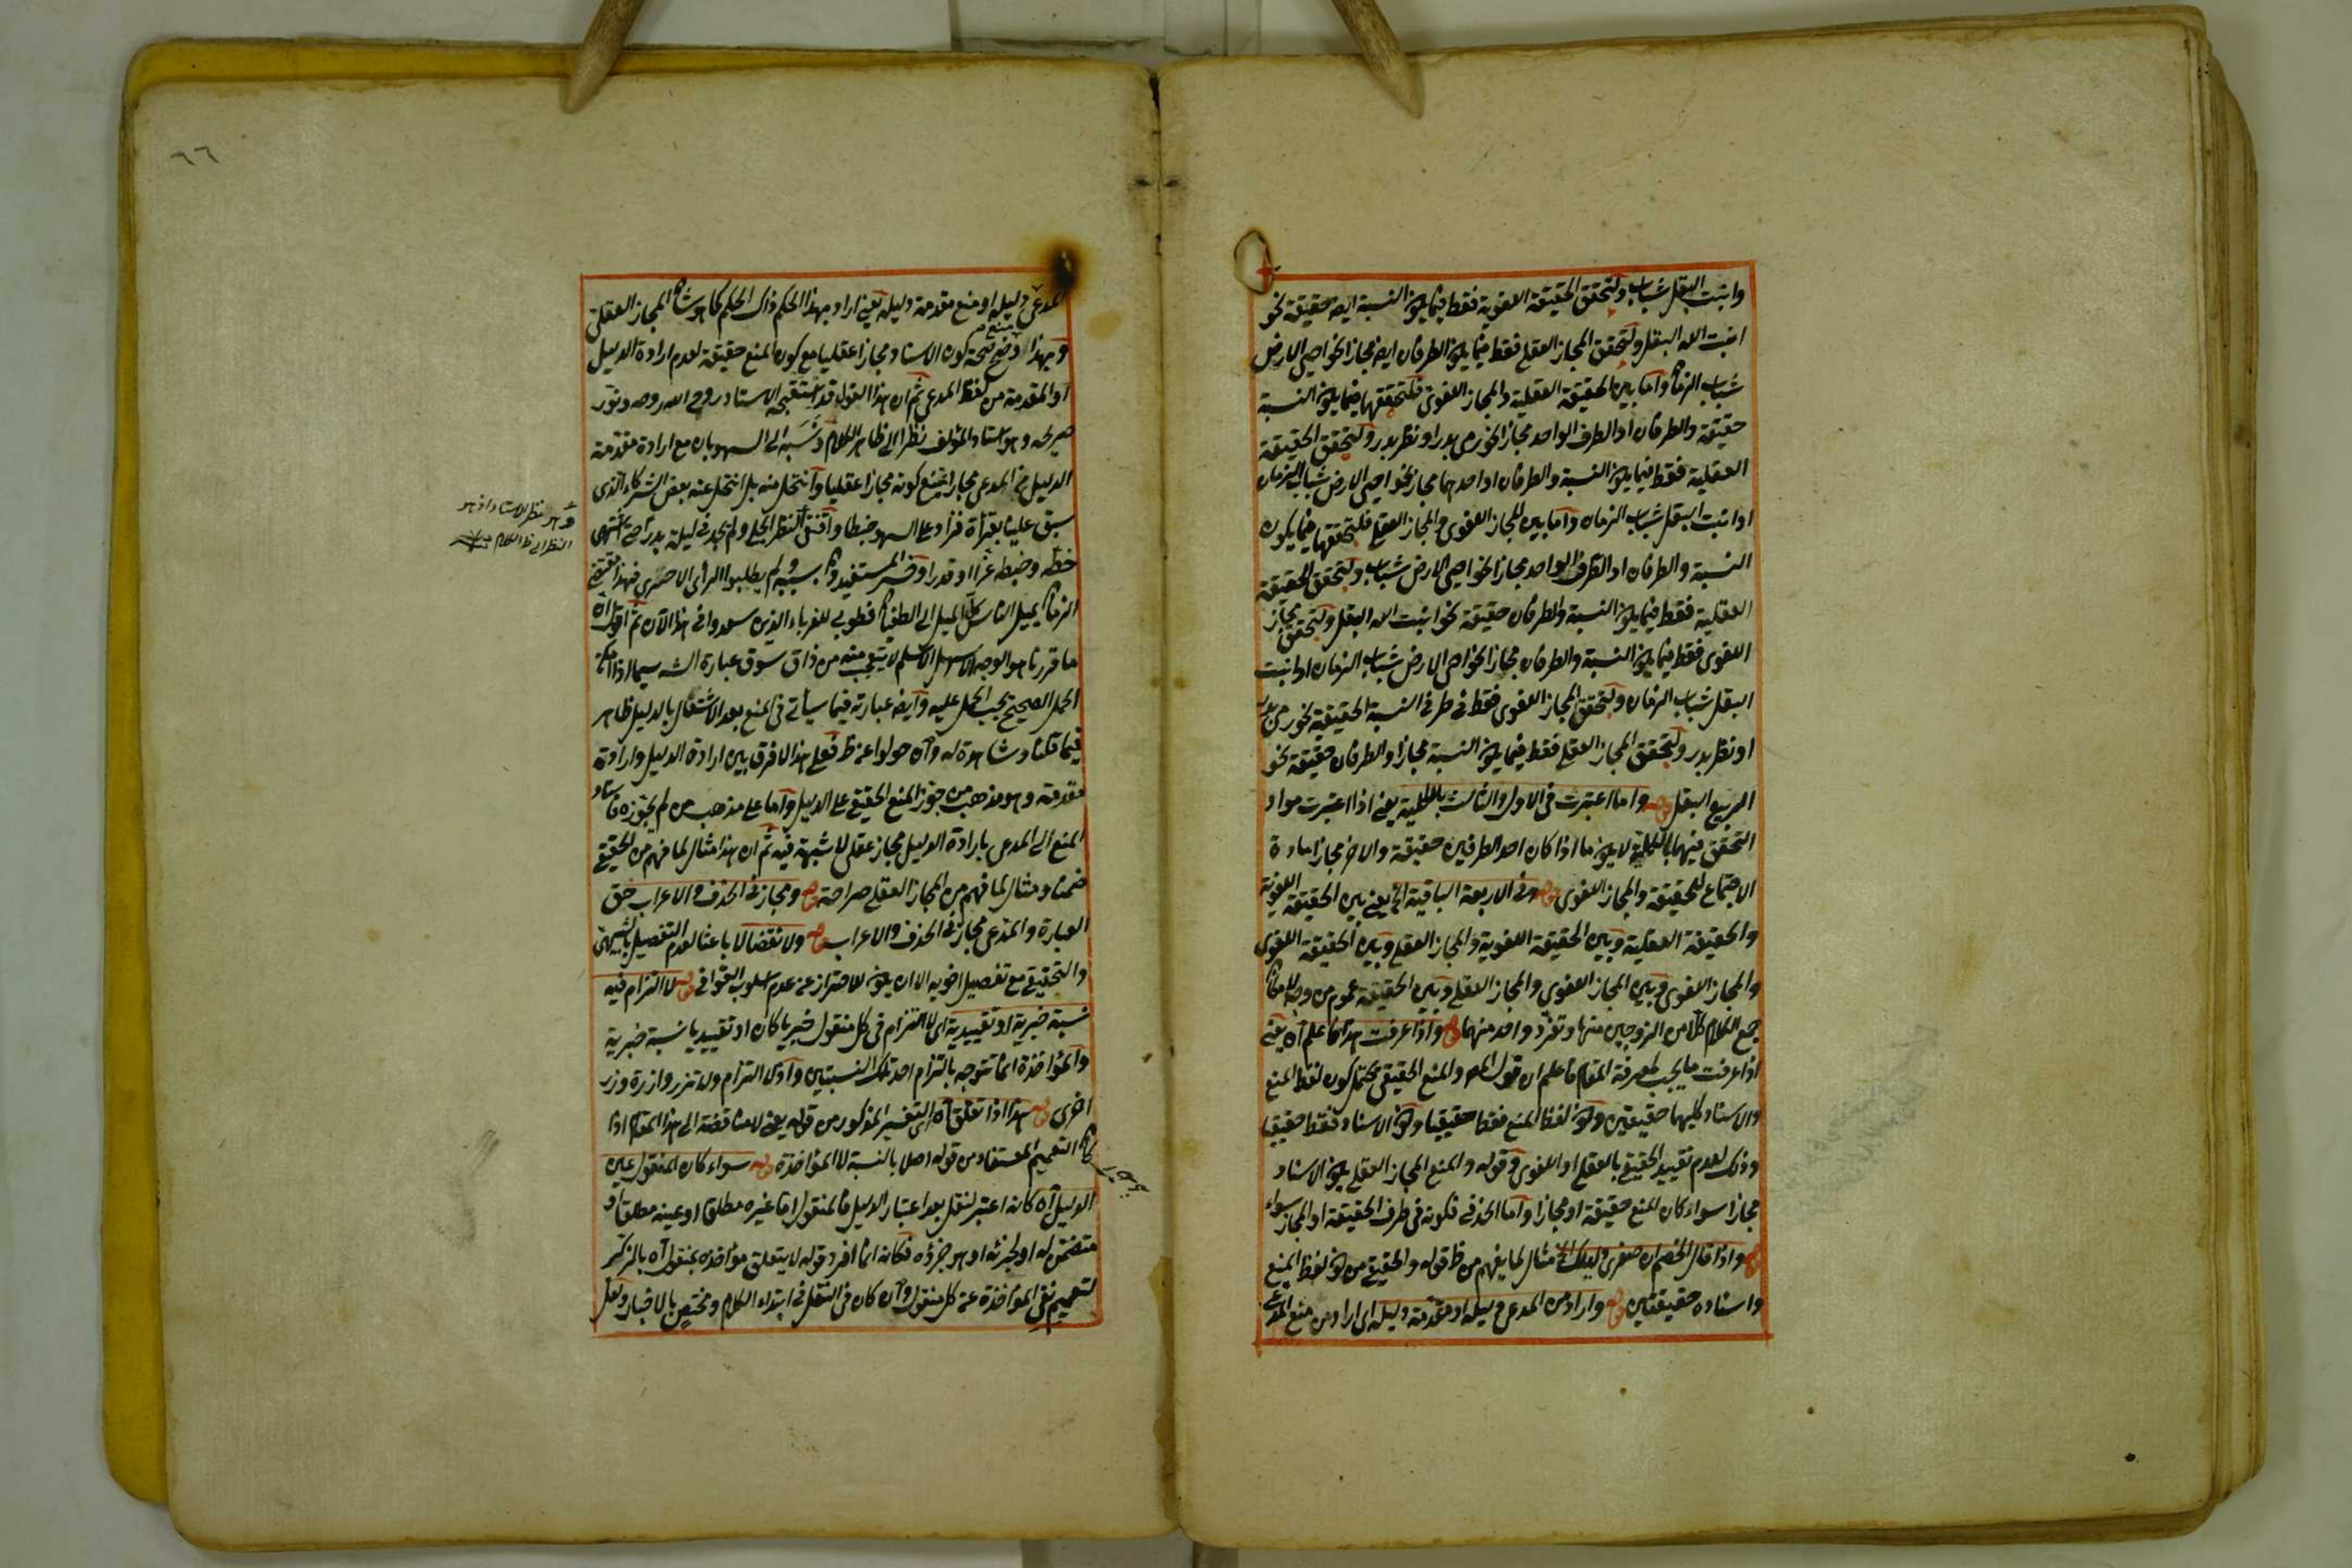 وانبت البقل شباب ولتحقق الحقيقة اللغوية فقط فيما يكون النسبة ايضا حقيقة نحو
انبت الله البقل ولتحقق المجاز العقلي فقط فيما يكون الطرفان ايضا مجازا نحو احيى الارض
شباب الزمان واما بين الحقيقة العقلية والمجاز اللغوي فلتحققهما فيما يكون النسبة
حقيقة والطرفان او الطرف الواحد مجازا نحو رمى بدر او نظر بدر ولتحقق الحقيقة
العقلية فقط فيما يكون النسبة والطرفان او احدهما مجازا نحو احيى الارض شباب الزمان
او انبت البقل شباب الزمان واما بين المجاز اللغوي والمجاز العقلي فلتحققهما فيما يكون
النسبة والطرفان او الطرف الواحد مجازا نحو احيى الارض شباب ولتحقق الحقيقة
العقلية فقط فيما يكون النسبة والطرفان حقيقة نحو انبت الله البقل ولتحقق مجاز
اللغوي فقط فيما يكون النسبة والطرفان مجازا نحو احيى الارض شباب الزمان او انبت
البقل شباب الزمان ولتحقق المجاز اللغوي فقط في طرفي النسبة الحقيقية نحو رمى بدر
او نظر بدر ولتحقق المجاز العقلي فقط فيما يكون النسبة مجازا والطرفان حقيقة نحو
الربيع البقل قوله واما اعتبرت في الاول والثالث بالكلية يعني اذا اعتبرت مواد
التحقق فيهما بالكلية لا يكون ما اذا كان احد الطرفين حقيقة والاخر مجازا مادة
الاجتماع للحقيقة والمجاز اللغوي قوله وفي الاربعة الباقية الخ يعني بين الحقيقة اللغوية
والحقيقة العقلية وبين الحقيقة اللغوية والمجاز العقلي وبين الحقيقة اللغوي
والمجاز اللغوي وبين المجاز اللغوي والمجاز العقلي وبين الحقيقة عموم من وجه لامكان
جمع الكلام كلا من الزوجين منها وتفرد واحد منهما قوله واذا عرفت هذا فاعلم اه يعني
اذا عرفت ما يجب لمعرفة المقام فاعلم ان قول المص والمنع الحقيقي يحتمل كون لفظ المنع
والاسناد كليهما حقيقيين وكون لفظ المنع فقط حقيقيا وكون الاسناد فقط حقيقيا
وذلك لعدم تقييد الحقيقي بالعقلي او اللغوي وقوله والمنع المجاز العقلي يكون الاسناد
مجازا سواء كان المنع حقيقة او مجازا واما الحذف فكونه في طرف الحقيقة او المجاز سواء
قوله واذا قال الخصم ان صغرى دليلك الخ مثال لما يفهم من ظ قوله والحقيقي من كون لفظ المنع
واسناده حقيقتين قوله واراد من المدعى دليله او مقدمة دليله اي اراد من منع المدعى
المدعى دليله او منع مقدمة دليله يعني اراد بهذا الحكم ذاك الحكم كما هو شان المجاز العقلي
وبهذا وضح صحة كون الاسناد مجازا عقليا مع كون المنع حقيقة لعدم ارادة الدليل
او المقدمة من لفظ المدعى ثم ان هذا القول قد استقبحه الاستاد روح الله روحه ونور
ضريحه وهو استاد المؤلف نظرا الى ظاهر الكلام ونسبه الى السهو بان مع ارادة مقدمة
الدليل من المدعى مجازا يمتنع كونه مجازا عقليا وانتحل منه بل انتحل عنه بعض الشركاء الذي
سبق علينا بقراءة فزاد على السهو خبطا واقتفى النظر الجلي ولم يجد في ليلة بدر انتهى
خطه وضبطه عزا وقدرا
الزمان يميل الناس كل الميل الى الطغيان فطوبى للغرباء الذين سعدوا في هذا الآن ثم اقول ان
ما قررنا هو الوجه الاسهل الاسلم لا يتعجب منه من ذاق سوق عبارة الش سيما اذا امكن
الحمل الصحيح يجب الحمل عليه وايضا عبارته فيما سيأتي في المنع بعد الاشتغال بالدليل ظاهر
فيما قلنا وشاهدة له وان حولوا عن ظ فعلى هذا لا فرق بين ارادة الدليل وارادة
مقدمته وهو مذهب من جوز المنع الحقيقي على الدليل واما على مذهب من لم يجوزه فاسناد
المنع الى المدعى بارادة الدليل مجاز عقلي لا شبهة فيه ثم ان هذا مثال لما فهم من الحقيقي
ضمنا ومثال لما فهم من المجاز العقلي صراحة قوله ومجاز في الحذف والاعراب حق
العبارة والمدعى مجاز في الحذف والاعراب قوله ولا نقضا لا باعثا لعدم التفصيل بالشبهي
والتحقيقي مع تفصيل اخويه الا ان يكون للاحتراز عن عدم اسلوب القوافي قوله لا التزام فيه
نسبة خبرية او تقييدية اي لا التزام في كل منقول خبريا كان او تقييديا نسبة خبرية
والمؤاخذة انما تتوجه بالتزام احد تلك النسبتين وادنى التزام ولا تزر وازرة وزر
اخرى قوله هذا اذا تعلق اه اي التفسير المذكور من قوله يعني لا مناقضة الى هذا المقام اذا
كان التعميم المستفاد من قوله اصلا بالنسبة لا المؤاخذة قوله سواء كان المنقول عين
الدليل اه كانه اعتبر لنقل بعد اعتبار الدليل فالمنقول اما غيره مطلقا او عينه مطلقا او
متضمن له او لجزئه او هو جزؤه فكانه انما افرد قوله لا يتعلق مؤاخذه بمنقول اه بالذكر
لتعميم نفي المؤاخذة عن كل منقول وان كان في النقل في ابتداء الكلام ومختص بالاخبار ولعل
وهو نظر الاستاد اذ هو
النظر الى ظ الكلام
٦٦